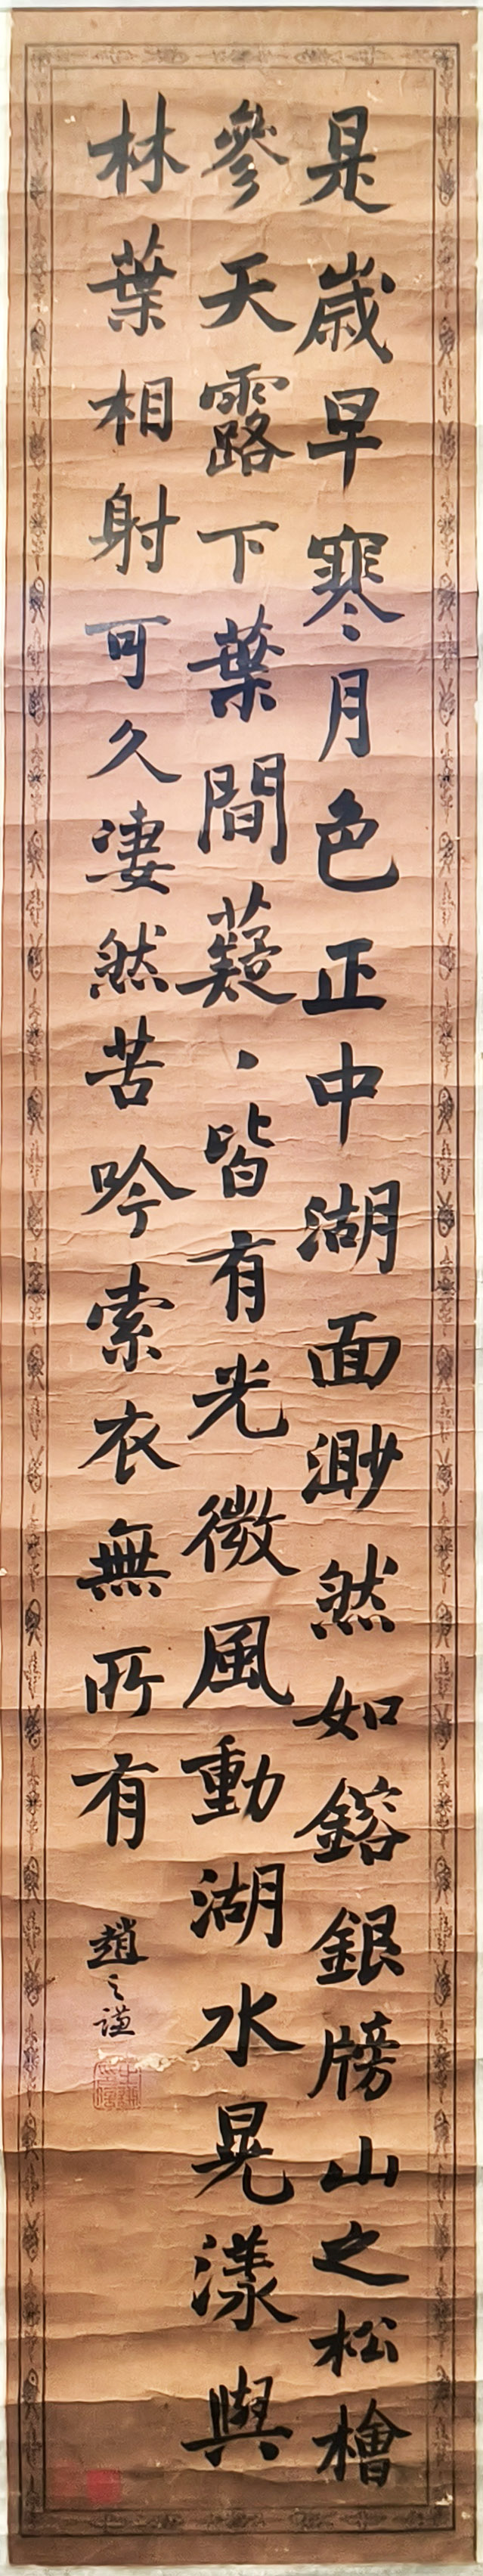 是歲早寒月色正中湖面渺然如鎔銀牓山之松檜
參天露下葉間薿、皆有光微風動湖水晃漾與
林葉相射可久淒然苦吟索衣無所有
趙之謙